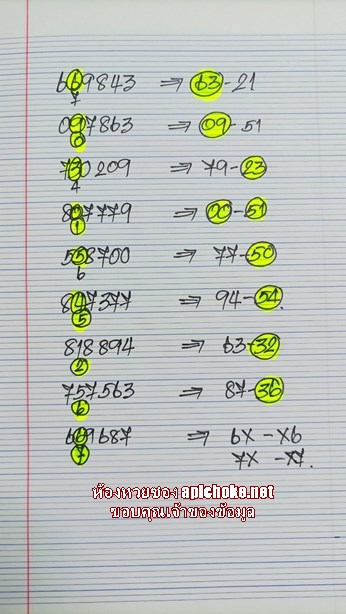 669843 ⇒ 63-21
7
097863 ⇒ 09-51
0
730209 ⇒ 79-23
4
807779 ⇒ 00-51
1
558700 ⇒ 77-50
6
847377 ⇒ 94-54.
5
818894 ⇒ 63-32
2
757563 ⇒ 87-36
6
669687 ⇒ 6X - X6
7 7X - X7.
ห้องหวยซอง apichoke.net
ขอบคุณเจ้าของข้อมูล